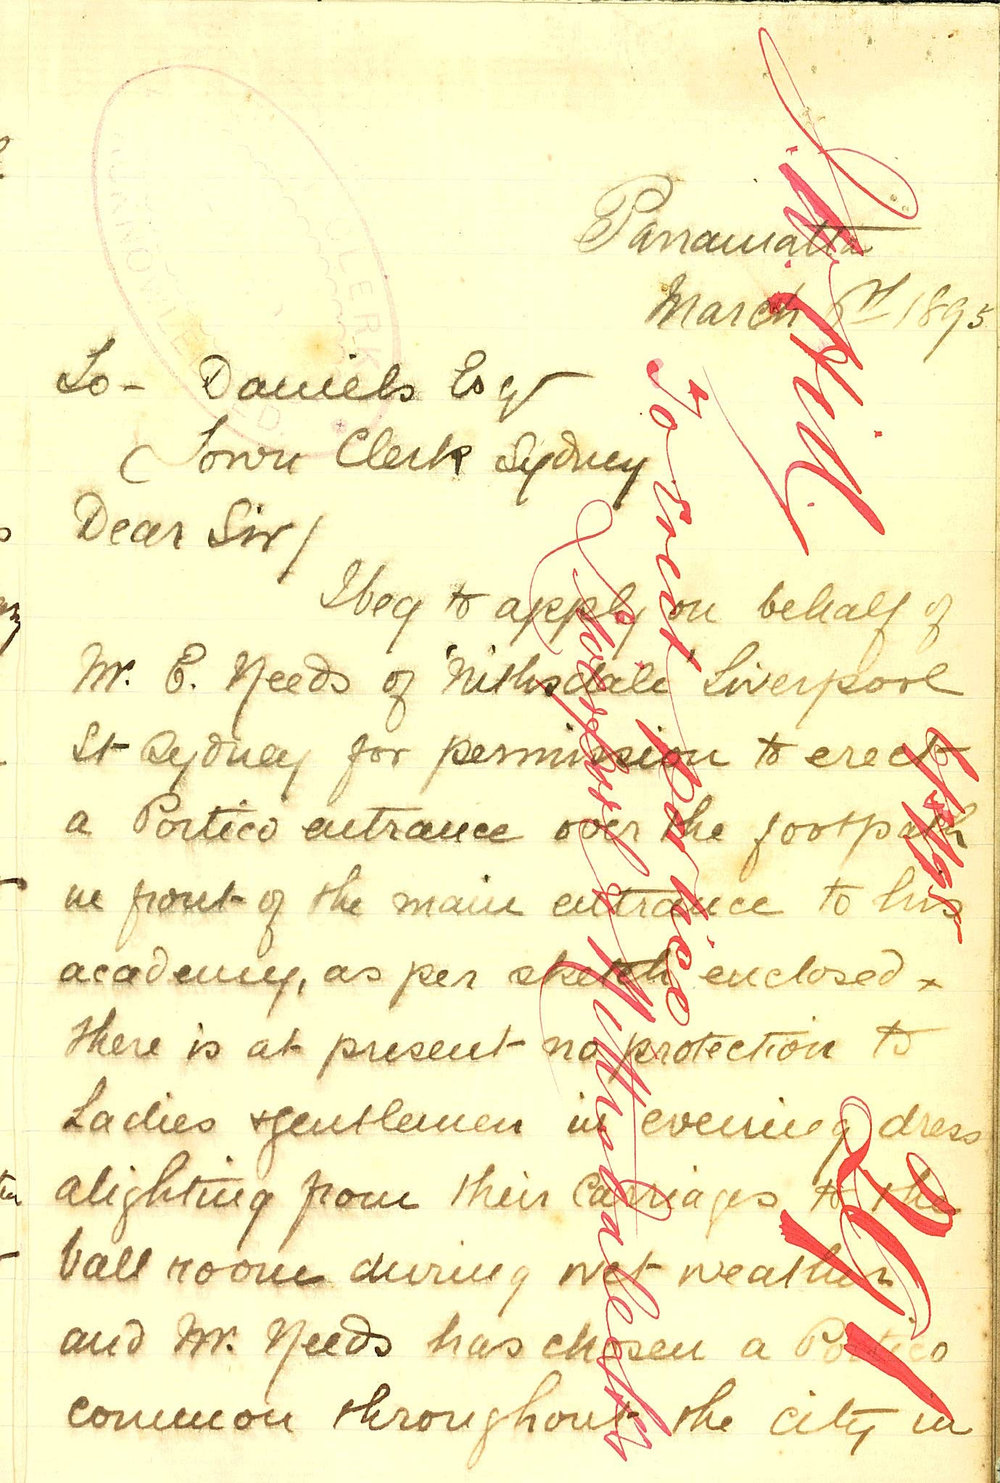 Parramatta
March 1895
To - Daniels Esqr
Town Clerk Sydney
Dear Sir/
I beg to apply on behalf of
Mr. E. Needs of 'Nithsdale' Liverpool
St Sydney for permission to erect
a Portico entrance over the footpath
in front of the main entrance to his
academy, as per sketch enclosed +
there is at present no protection to
Ladies & gentlemen in evening dress
alighting from their Carriages to the
ball room during wet weather
and Mr. Needs has chosen a Portico
common throughout the city in
Hill
To erect portico
Liverpool & Streets
CLERK